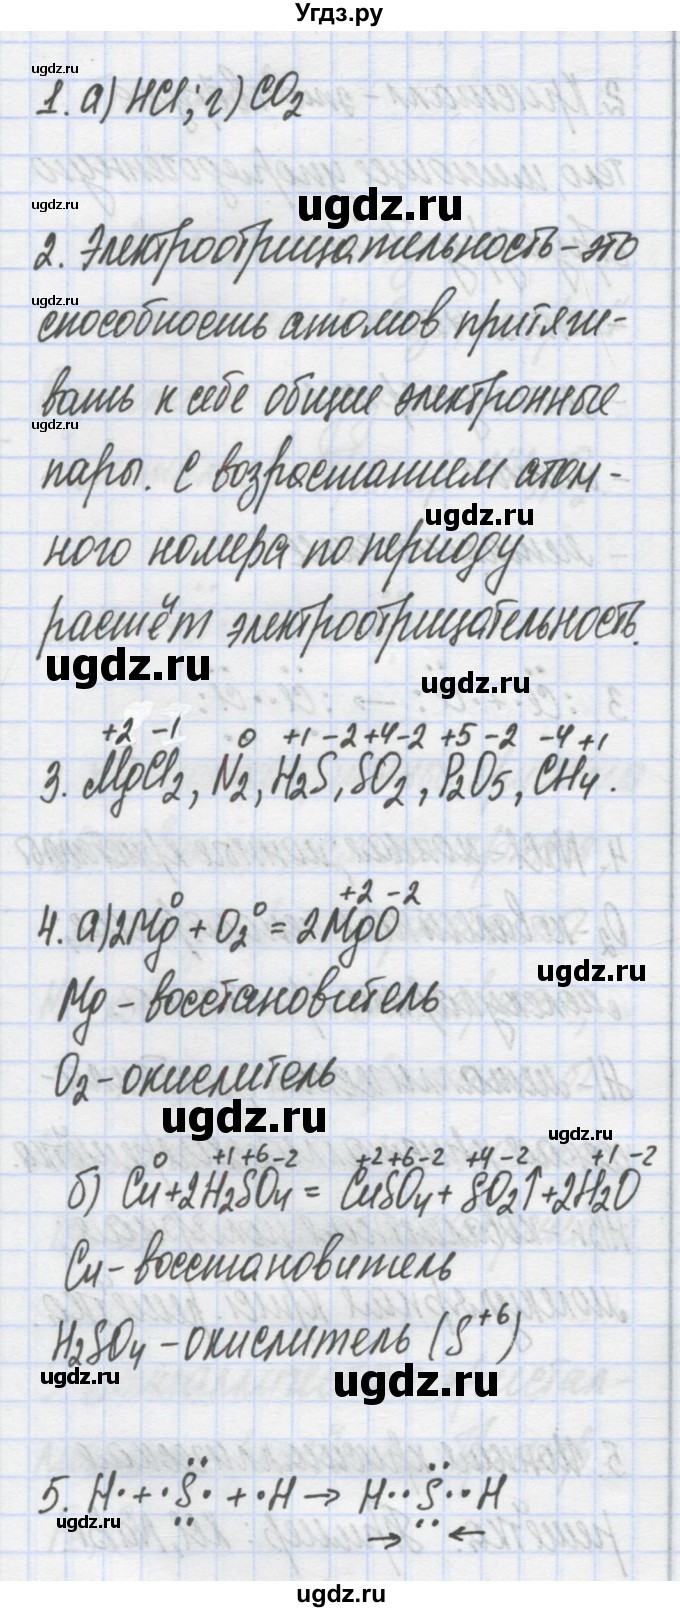 Угдз.ру
ugdz.ru
1. а) HCl; г) CO2
ugdz.ru
ugdz.ru
2. Электроотрицательность – это
ugdz.ru
способность атомов притяги-
вать к себе общие электронные
ugdz.ru
пары. С возрастанием атом-
ugdz.ru
ного номера по периоду
растёт электроотрицательность.
ugdz.ru
ugdz.ru
+2 -1 0 +1 -2 +4 -2 +5 -2 -4 +1
3. MgCl2, N2, H2S, SO2, P2O5, CH4.
+2 -2
4. а) 2Mg⁰ + O2⁰ = 2MgO
ugdz.ru
Mg – восстановитель
O2 – окислитель
ugdz.ru
ugdz.ru
0 +1 +6 -2 +2 +6 -2 +4 -2 +1 -2
б) Cu + 2H2SO4 = CuSO4 + SO2↑ + 2H2O
Cu – восстановитель
H2SO4 – окислитель (S⁺⁶)
ugdz.ru
ugdz.ru
5. H· + ·S· + ·H → H··S··H
ugdz.ru
→ ←
ugdz.ru